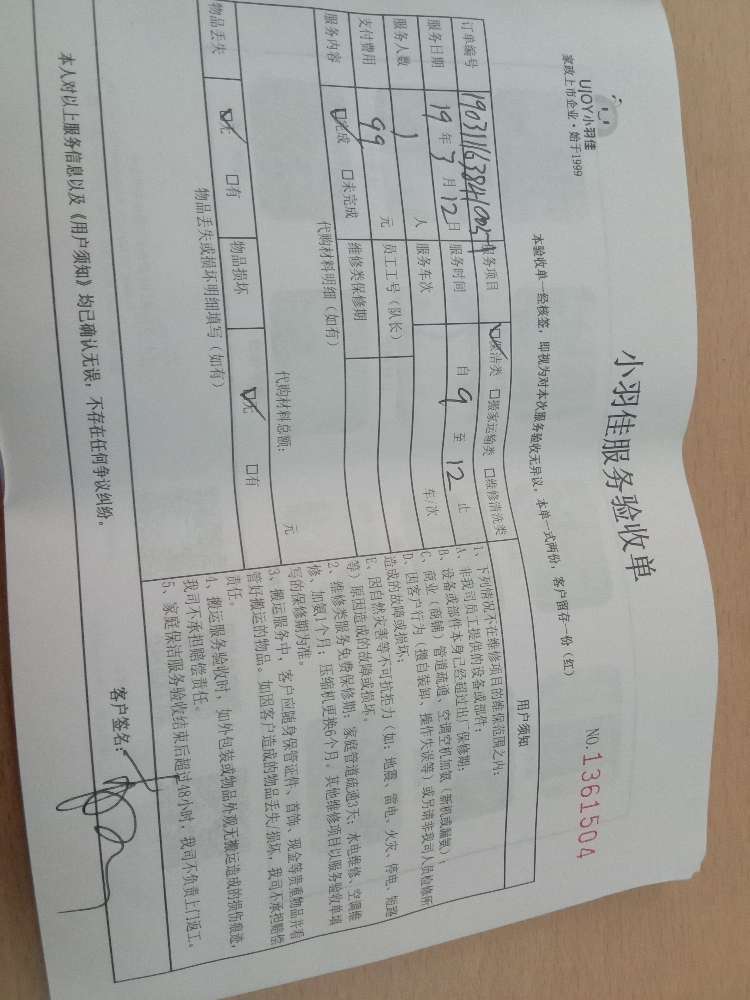 UJOY小羽佳
家政上市企业·始于1999
小羽佳服务验收单
NO.1361504
本验收单一经核签，即视为对本次服务验收无异议，本单一式两份，客户留存一份（红）
订单编号 服务项目 保洁类 搬家运输类 维修清洗类
服务日期 19年3月12日 服务时间 自9至12止
服务人数 1人 服务车次 车/次
支付费用 99元 员工工号（队长）
服务内容 完成 未完成 维修类保修期
代购材料明细（如有）
代购材料总额： 元
物品丢失 无 有 物品损坏 无 有
物品丢失或损坏明细填写（如有）
用户须知
1、下列情况不在维修项目的维保范围之内：
A、非我司员工提供的设备或部件；
B、设备或部件本身已经超过出厂保修期；
C、商业（商铺）管道疏通、空调空机加氨（新机或漏氨）；
D、因客户行为（擅自装卸、操作失误等）或另请非我司人员检修所
造成的故障或损坏；
E、因自然灾害等不可抗拒力（如：地震、雷电、火灾、停电、短路
等）原因造成的故障或损坏。
2、维修类服务免费保修期：家庭管道疏通3天；水电维修、空调维
修、加氨1个月；压缩机更换6个月。其他维修项目以服务验收单填
写的保修期为准。
3、搬运服务中，客户应随身保管证件、首饰、现金等贵重物品并看
管好搬运的物品。如因客户造成的物品丢失/损坏，我司不承担赔偿
责任。
4、搬运服务验收时，如外包装或物品外观无搬运造成的损伤痕迹，
我司不承担赔偿责任。
5、家庭保洁服务验收结束后超过48小时，我司不负责上门返工。
本人对以上服务信息以及《用户须知》均已确认无误，不存在任何争议纠纷。
客户签名：